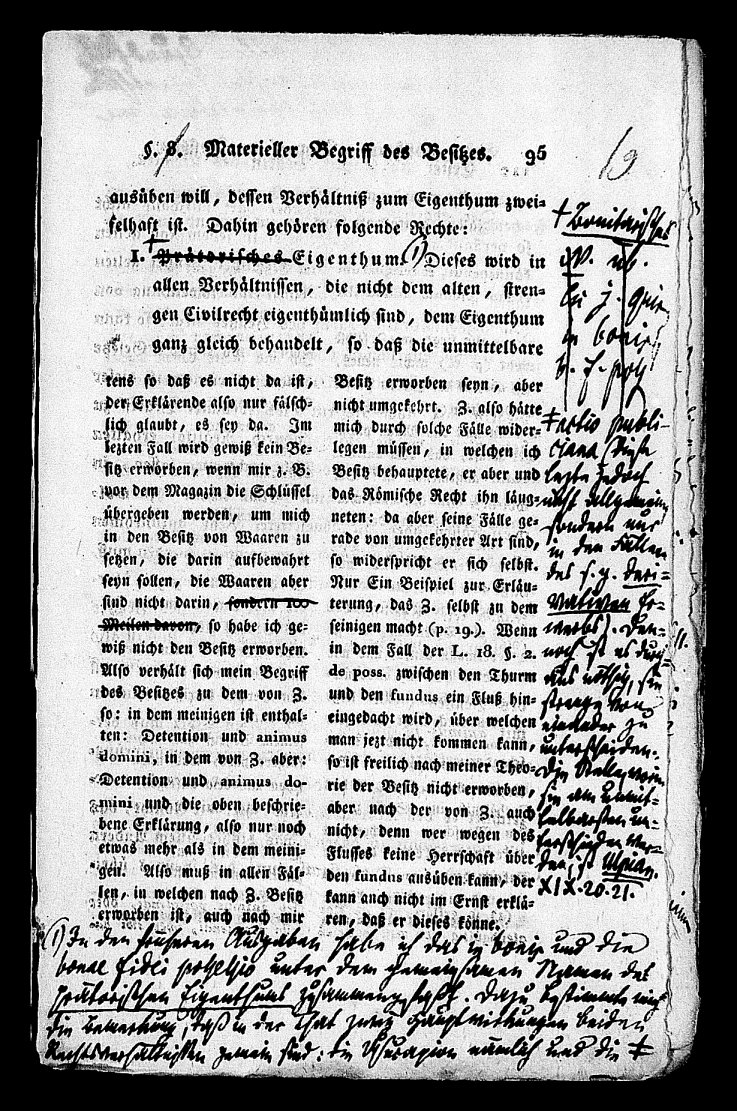 §. 8. Materieller Begriff des Besitzes. 95
ausüben will, dessen Verhältniß zum Eigenthum zwei-
felhaft ist. Dahin gehören folgende Rechte:
1. Prätorisches Eigenthum. (1) Dieses wird in
allen Verhältnissen, die nicht dem alten, stren-
gen Civilrecht eigenthümlich sind, dem Eigenthum
ganz gleich behandelt, so daß die unmittelbare
tens so daß es nicht da ist,
der Erklärende also nur fälsch-
lich glaubt, es sey da. Im
lezten Fall wird gewiß kein Be-
sitz erworben, wenn mir z. B.
vor dem Magazin die Schlüssel
übergeben werden, um mich
in den Besitz von Waaren zu
setzen, die darin aufbewahrt
seyn sollen, die Waaren aber
sind nicht darin, sondern 100
Meilen davon, so habe ich ge-
wiß nicht den Besitz erworben.
Also verhält sich mein Begriff
des Besitzes zu dem von Z.
so: in dem meinigen ist enthal-
ten: Detention und animus
domini, in dem von Z. aber:
Detention und animus do-
mini und die oben beschrie-
bene Erklärung, also nur noch
etwas mehr als in dem meini-
gen. Also muß in allen Fäl-
len, in welchen nach Z. Besitz
erworben ist, auch nach mir
Besitz erworben seyn, aber
nicht umgekehrt. Z. also hätte
mich durch solche Fälle wider-
legen müssen, in welchen ich
Besitz behauptete, er aber und
das Römische Recht ihn läug-
neten: da aber seine Fälle ge-
rade von umgekehrter Art sind,
so widerspricht er sich selbst.
Nur Ein Beispiel zur Erläu-
terung, das Z. selbst zu dem
seinigen macht (p. 19.). Wenn
in dem Fall der L. 18. §. 2.
de poss. zwischen den Thurm
und den fundus ein Fluß hin-
eingedacht wird, über welchen
man jezt nicht kommen kann,
so ist freilich nach meiner Theo-
rie der Besitz nicht erworben,
aber nach der von Z. auch
nicht, denn wer wegen des
Flusses keine Herrschaft über
den fundus ausüben kann, der
kann auch nicht im Ernst erklä-
ren, daß er dieses könne.
† Bonitarisches
in bonis
† actio publi-
ciana (diese
letzte jedoch
nicht allgemein
sondern nur
in den Fällen
des s. g. deri-
vativen Er-
werbs). Den-
noch ist es durch-
aus nöthig, sie
strenge von
einander zu
unterscheiden.
Die Stelle, worin
sie am unmit-
telbarsten un-
terschieden wer-
den, ist Ulpian.
XIX. 20. 21.
(1) In den früheren Ausgaben habe ich das in bonis und die
bonae fidei possessio unter dem gemeinsamen Namen des
prätorischen Eigenthums zusammengefaßt. Dazu bestimmte mich
die Bemerkung, daß in der That zwey Hauptwirkungen beiden
Rechtsverhältnissen gemein sind: die Usucapion nämlich und die †